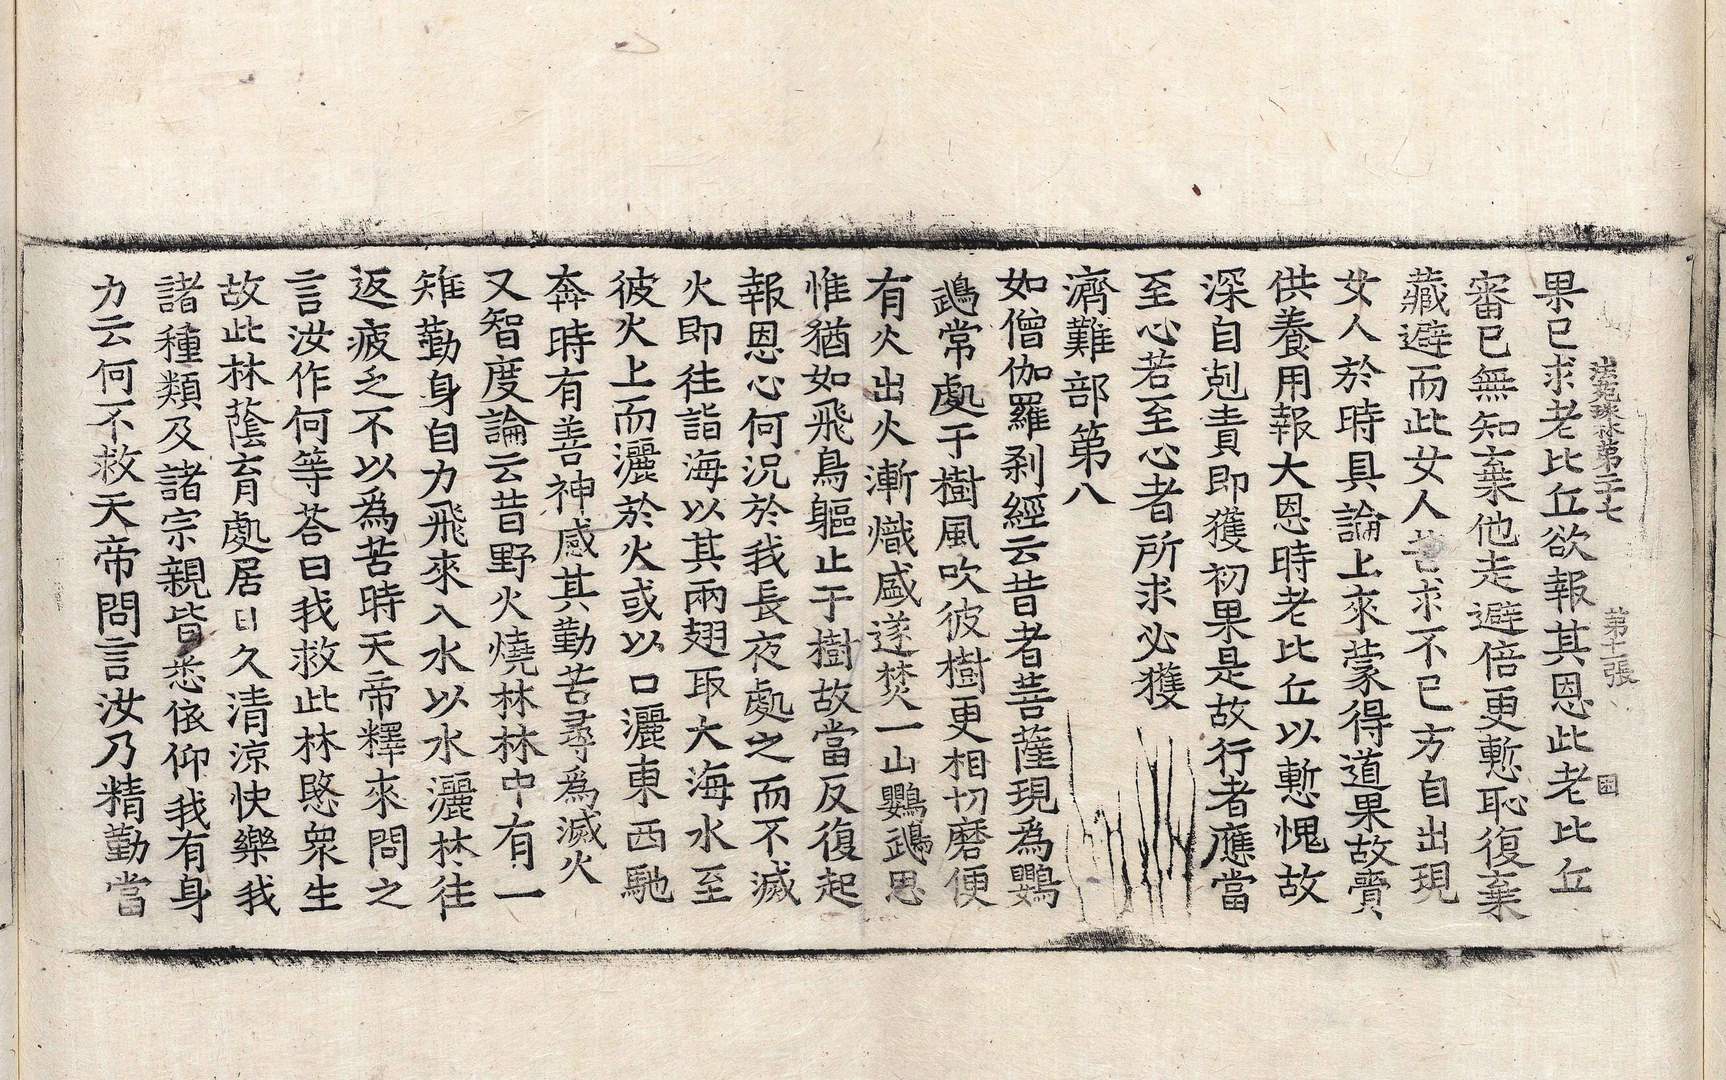 法苑珠林第二十七 第十一張 困
果已求老比丘欲報其恩此老比丘
審已無知棄他走避倍更慙恥復棄
藏避而此女人苦求不已方自出現
女人於時具論上來蒙得道果故賷
供養用報大恩時老比丘以慙愧故
深自剋責即獲初果是故行者應當
至心若至心者所求必獲
濟難部第八
如僧伽羅剎經云昔者菩薩現為鸚
鵡常處于樹風吹彼樹更相切磨便
有火出火漸熾盛遂焚一山鸚鵡思
惟猶如飛鳥軀止于樹故當反復起
報恩心何況於我長夜處之而不滅
火即往詣海以其兩翅取大海水至
彼火上而灑於火或以口灑東西馳
奔時有善神感其勤苦尋為滅火
又智度論云昔野火燒林林中有一
雉勤身自力飛來入水以水灑林往
返疲乏不以為苦時天帝釋來問之
言汝作何等荅曰我救此林愍衆生
故此林蔭育處居日久清涼快樂我
諸種類及諸宗親皆悉依仰我有身
力云何不救天帝問言汝乃精勤當